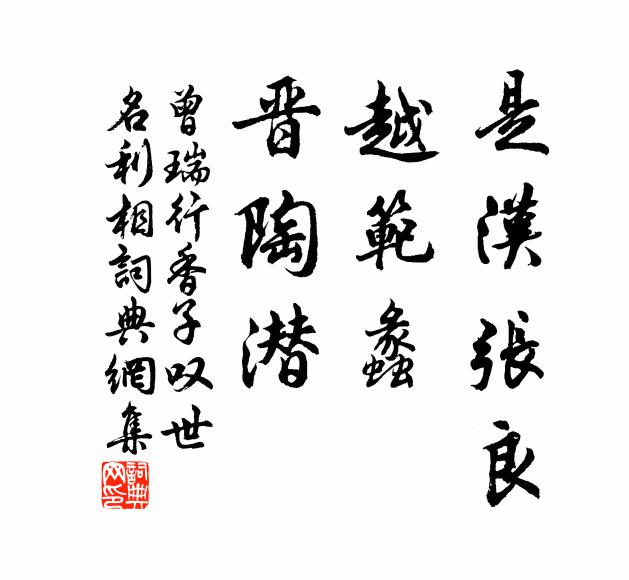 是漢張良
越範蠡
晋陶潜
曾瑞行香子叹世
名利相詞典網集
詞典網印